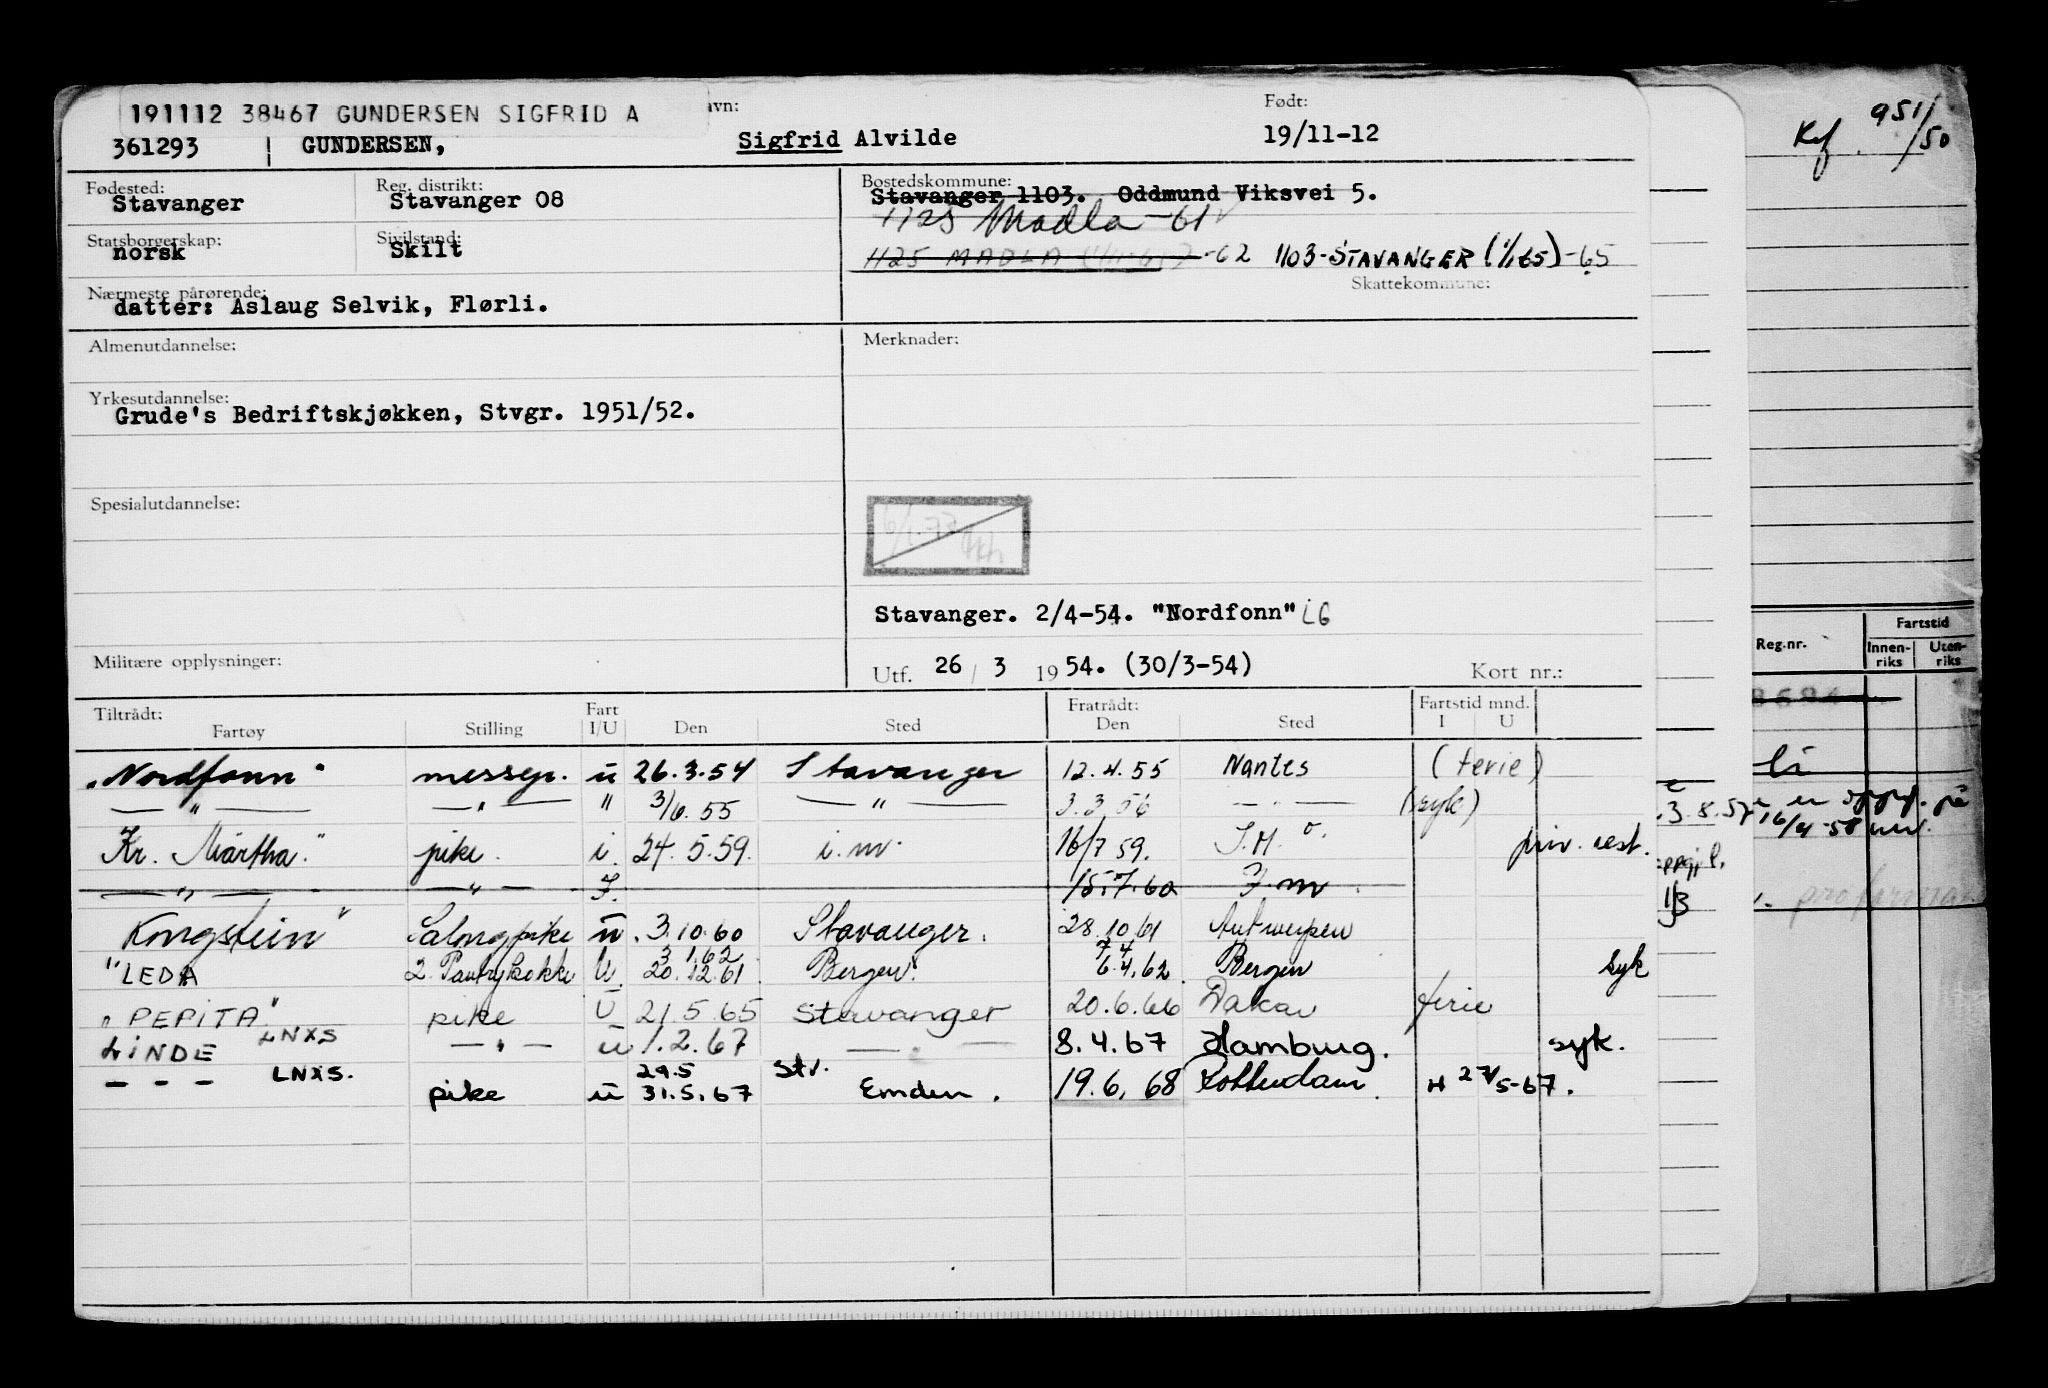 191112 38467 GUNDERSEN SIGFRID A
avn:
Født:
361293 GUNDERSEN, Sigfrid Alvilde 19/11-12
Fødested: Reg. distrikt: Bostedskommune:
Stavanger Stavanger 08 Stavanger 1103. Oddmund Viksvei 5.
1125 Madla -61
Statsborgerskap: Sivilstand:
norsk Skilt
1125 MADLA -62 1103-STAVANGER (1/1 65) -65
Nærmeste pårørende: Skattekommune:
datter: Aslaug Selvik, Flørli.
Almenutdannelse: Merknader:
Yrkesutdannelse:
Grude's Bedriftskjøkken, Stvgr. 1951/52.
Spesialutdannelse:
6/1.73
Stavanger. 2/4-54. "Nordfonn" LG
Militære opplysninger:
Utf. 26 / 3 1954. (30/3-54) Kort nr.:
Tiltrådt: Fart Fratrådt: Fartstid mnd.
Fartøy Stilling I/U Den Sted Den Sted I U
"Nordfonn" messep. u 26.3.54 Stavanger 12.4.55 Nantes (ferie)
— " — — " — " 3/6. 55 — " — 3.3.56 — " — (syk)
Kr. Märtha." pike. i. 24.5.59. i.m. 16/7 59. I.M. priv. rest.
— " — — " — I. 15.7.60 I.m.
Kongstein" Salongpike u. 3.10.60 Stavanger. 28.10.61 Antwerpen
3 1.62 7 4
"LEDA 2. Pantrykokke U. 20.12.61. Bergen. 6.4.62 Bergen syk
"PEPITA" pike U 21.5.65 Stavanger 20.6.66 Dakar ferie
LINDE LNXS — " — u 1.2.67 — " — 8.4.67 Hamburg. syk.
— — — LNXS. 29.5 Stv.
pike u 31.5.67 Emden. 19.6.68 Rotterdam H 27/5-67.
Kf. 951/50
Reg.nr. Fartstid
Innen-riks Uten-riks
8684
3.8.57
16/4-58
1/3
proforma